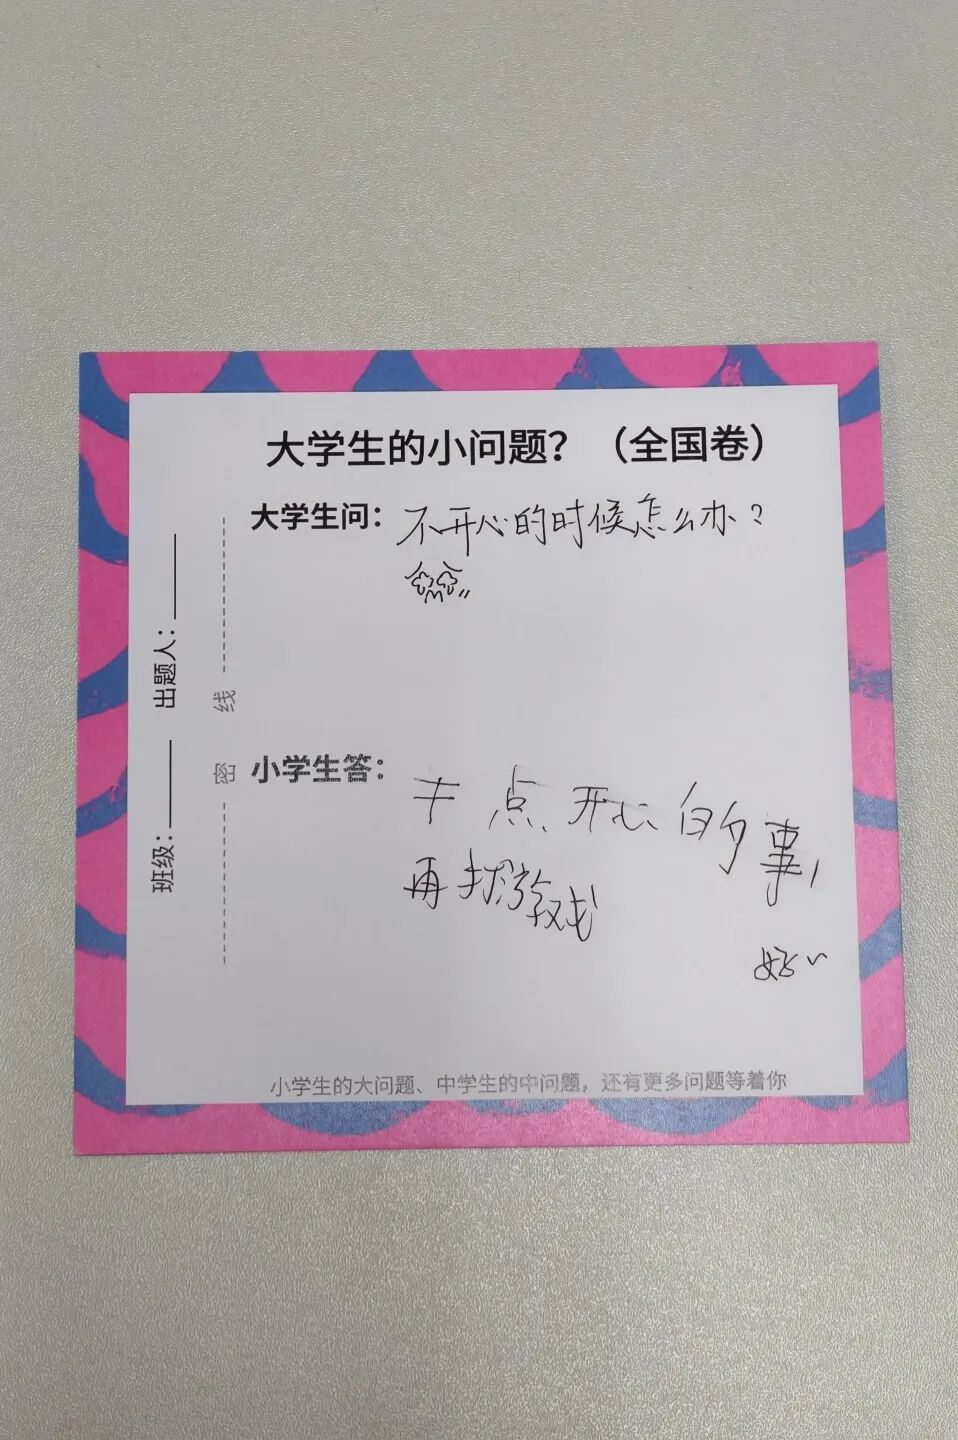 大学生的小问题？（全国卷）
大学生问：不开心的时候怎么办？
出题人：
班级：
线
密
小学生答：
点开心的事，
再找游戏
小学生的大问题、中学生的中问题，还有更多问题等着你